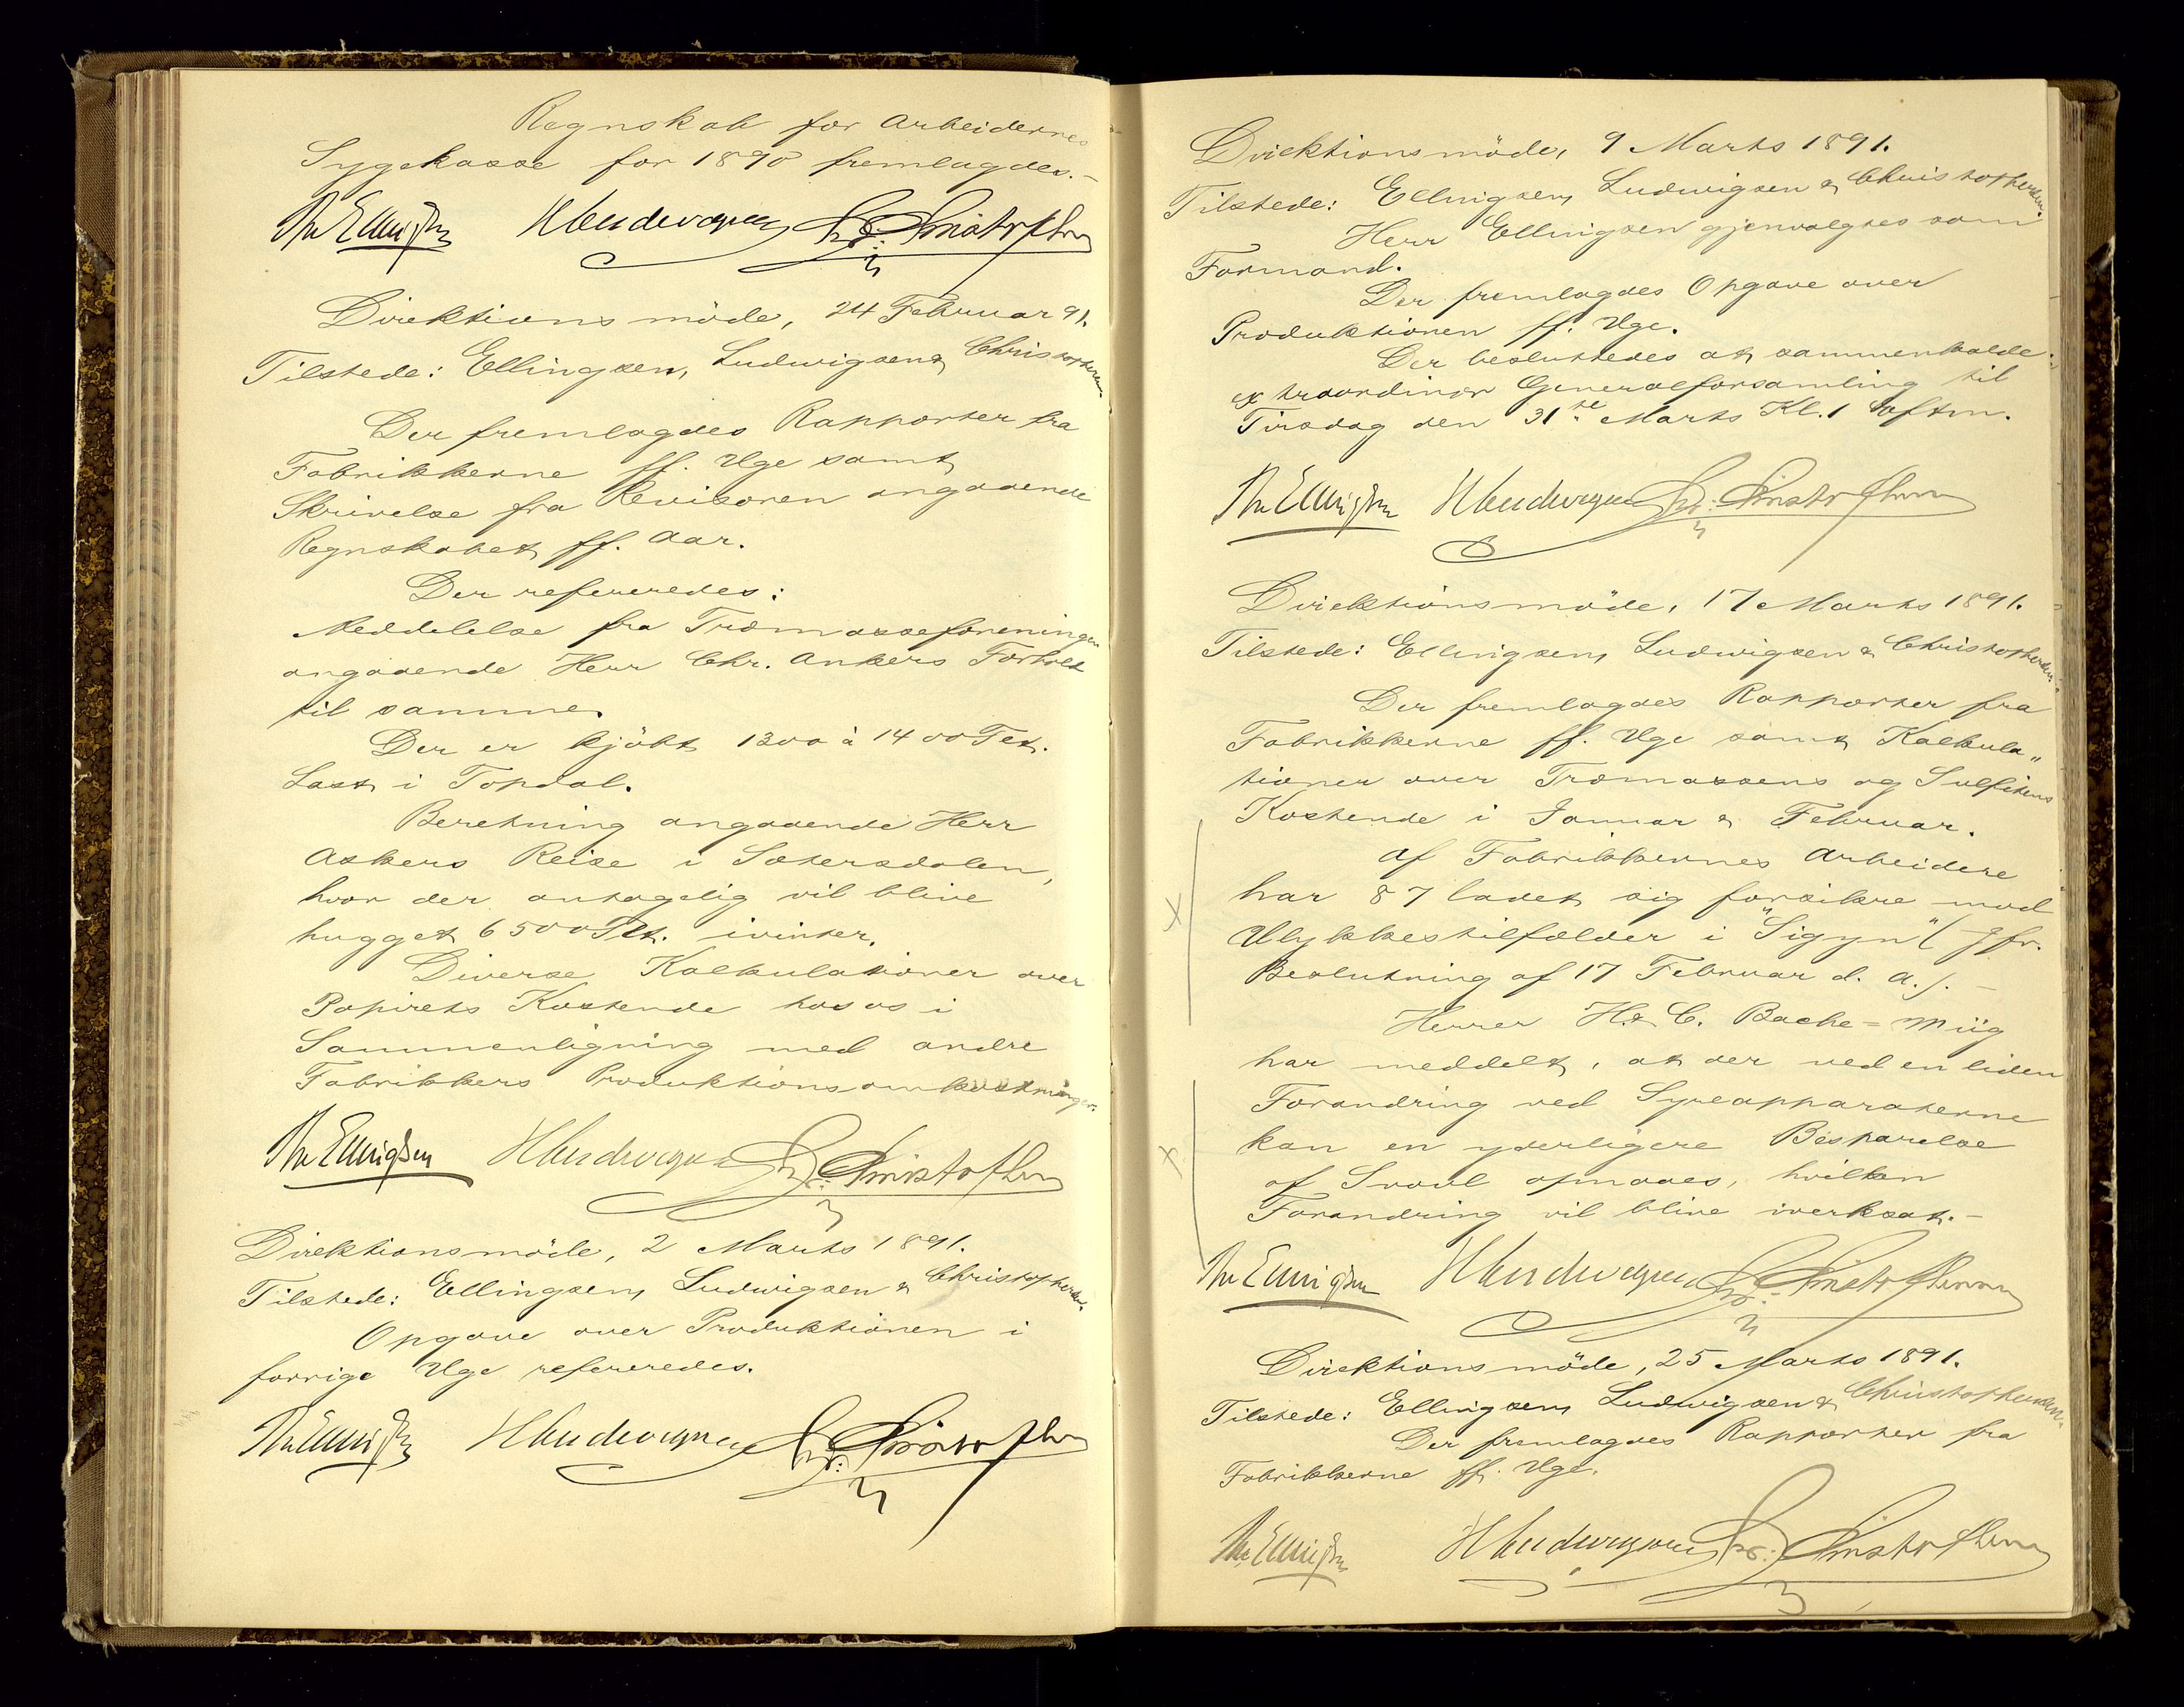 Regnskab for Arbeidernes
Sygekasse for 1890 fremlagdes.–
Th Ellingsen H Ludwigsen Chr. Christophersen
Direktionsmöde, 24 Februar 91.
Tilstede: Ellingsen, Ludwigsen & Christophersen
Der fremlagdes Rapporter fra
Fabrikkerne ff. Uge samt
Skrivelse fra Revisoren angaaende
Regnskabet ff. Aar.
Der refereredes:
Meddelelse fra Træmasseforeningen
angaaende Herr Chr. Ankers Forhold
til samme.
Der er kjöbt 1300 à 1400 Tct.
Last i Topdal.
Beretning angaaende Herr
Askers Reise i Sætersdalen,
hvor der antagelig vil blive
hugget 6500 Tct. ivinter.
Diverse Kalkulationer over
Papirets Kostende hos os i
Sammenligning med andre
Fabrikkers Produktionsomkostninger.
Th Ellingsen H Ludwigsen Chr. Christophersen
Direktionsmöde, 2 Marts 1891.
Tilstede: Ellingsen, Ludwigsen & Christophersen.
Opgave over Produktionen i
forrige Uge refereredes.
Th Ellingsen H Ludwigsen Chr. Christophersen
Direktionsmöde, 9 Marts 1891.
Tilstede: Ellingsen, Ludwigsen & Christophersen.
Herr Ellingsen gjenvalgtes som
Formand.
Der fremlagdes Opgave over
Produktionen ff. Uge.
Der besluttedes at sammenkalde
extraordinær Generalforsamling til
Tirsdag den 31te Marts Kl. 1 Eftm.
Th Ellingsen H Ludwigsen Chr. Christophersen
Direktionsmöde, 17 Marts 1891.
Tilstede: Ellingsen, Ludwigsen & Christophersen.
Der fremlagdes Rapporter fra
Fabrikkerne ff. Uge samt Kalkula„
tioner over Træmassens og Sulfitens
Kostende i Januar & Februar.
Af Fabrikkernes Arbeidere
har 87 ladet sig forsikre mod
Ulykkestilfælder i "Sigyn" (Jfr.
Beslutning af 17 Februar d. A.). –
Herrer H. & C. Bache=Wiig
har meddelt, at der ved en liden
Forandring ved Syreapparaterne
kan en yderligere Besparelse
af Svovl opnaaes, hvilken
Forandring vil blive iverksat.–
Th Ellingsen H Ludwigsen Chr. Christophersen
Direktionsmöde, 25 Marts 1891.
Tilstede: Ellingsen, Ludwigsen & Christophersen.
Der fremlagdes Rapporter fra
Fabrikkerne ff. Uge.
Th Ellingsen H Ludwigsen Chr. Christophersen